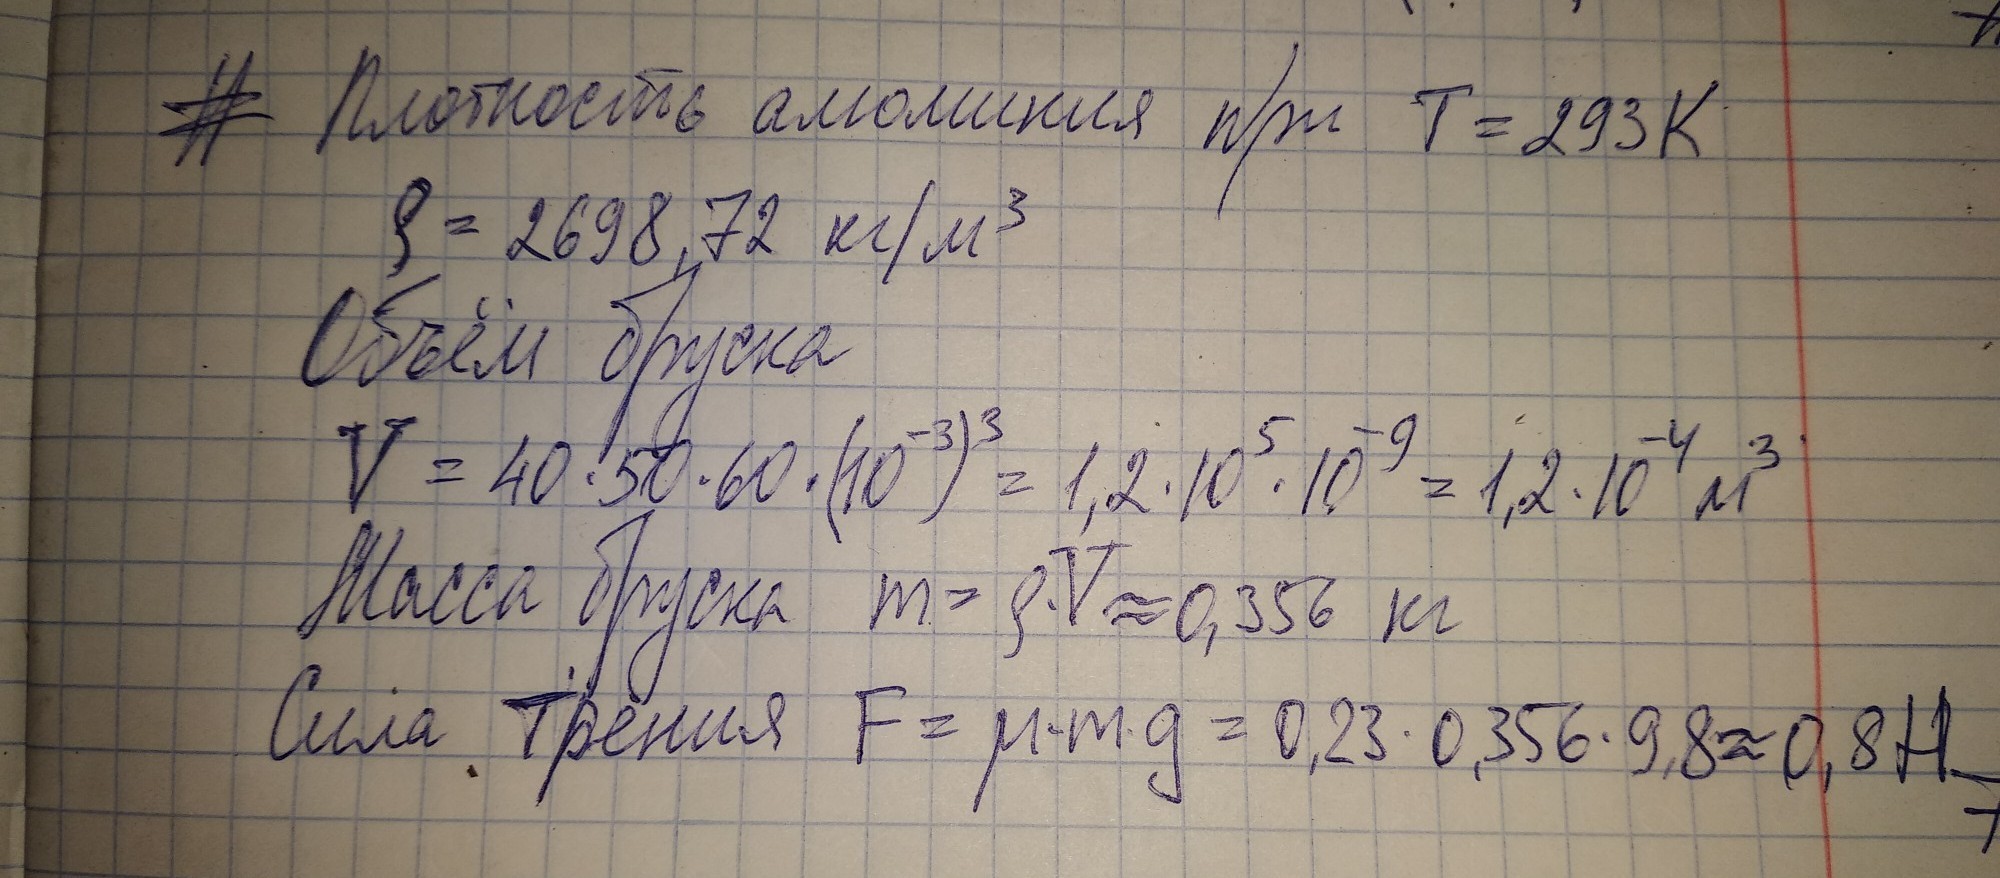 # Плотность алюминия при T = 293 K
ρ = 2698,72 кг/м³
Объём бруска
V = 40·50·60·(10⁻³)³ = 1,2·10⁵·10⁻⁹ = 1,2·10⁻⁴ м³
Масса бруска m = ρ·V ≈ 0,356 кг
Сила трения F = μ·m·g = 0,23·0,356·9,8 ≈ 0,8 Н